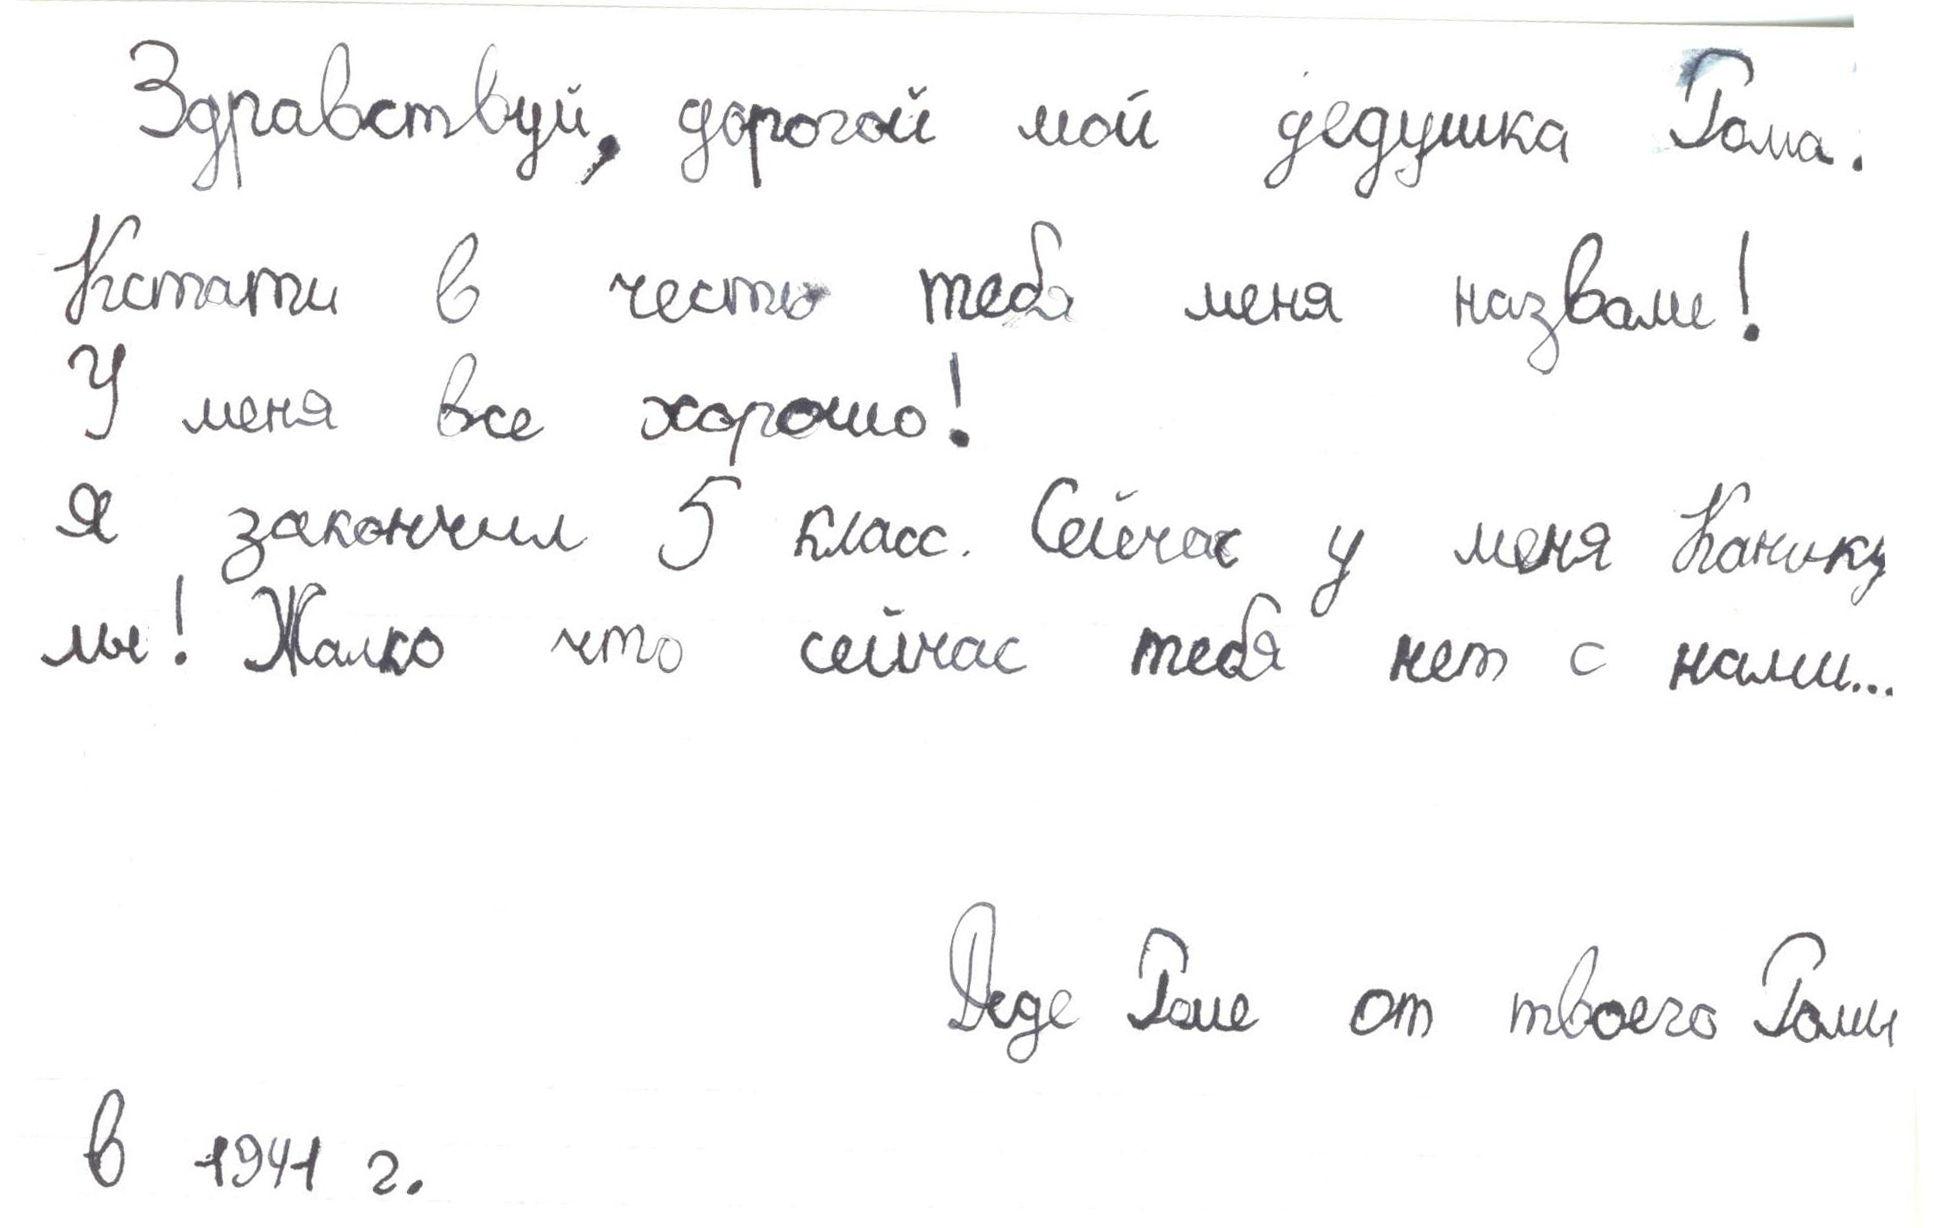 Здравствуй, дорогой мой дедушка Рома.
Кстати в честь тебя меня назвали!
У меня все хорошо!
Я закончил 5 класс. Сейчас у меня Канику
лы! Жалко что сейчас тебя нет с нами...
Деде Роме от твоего Ромы
в 1941 г.